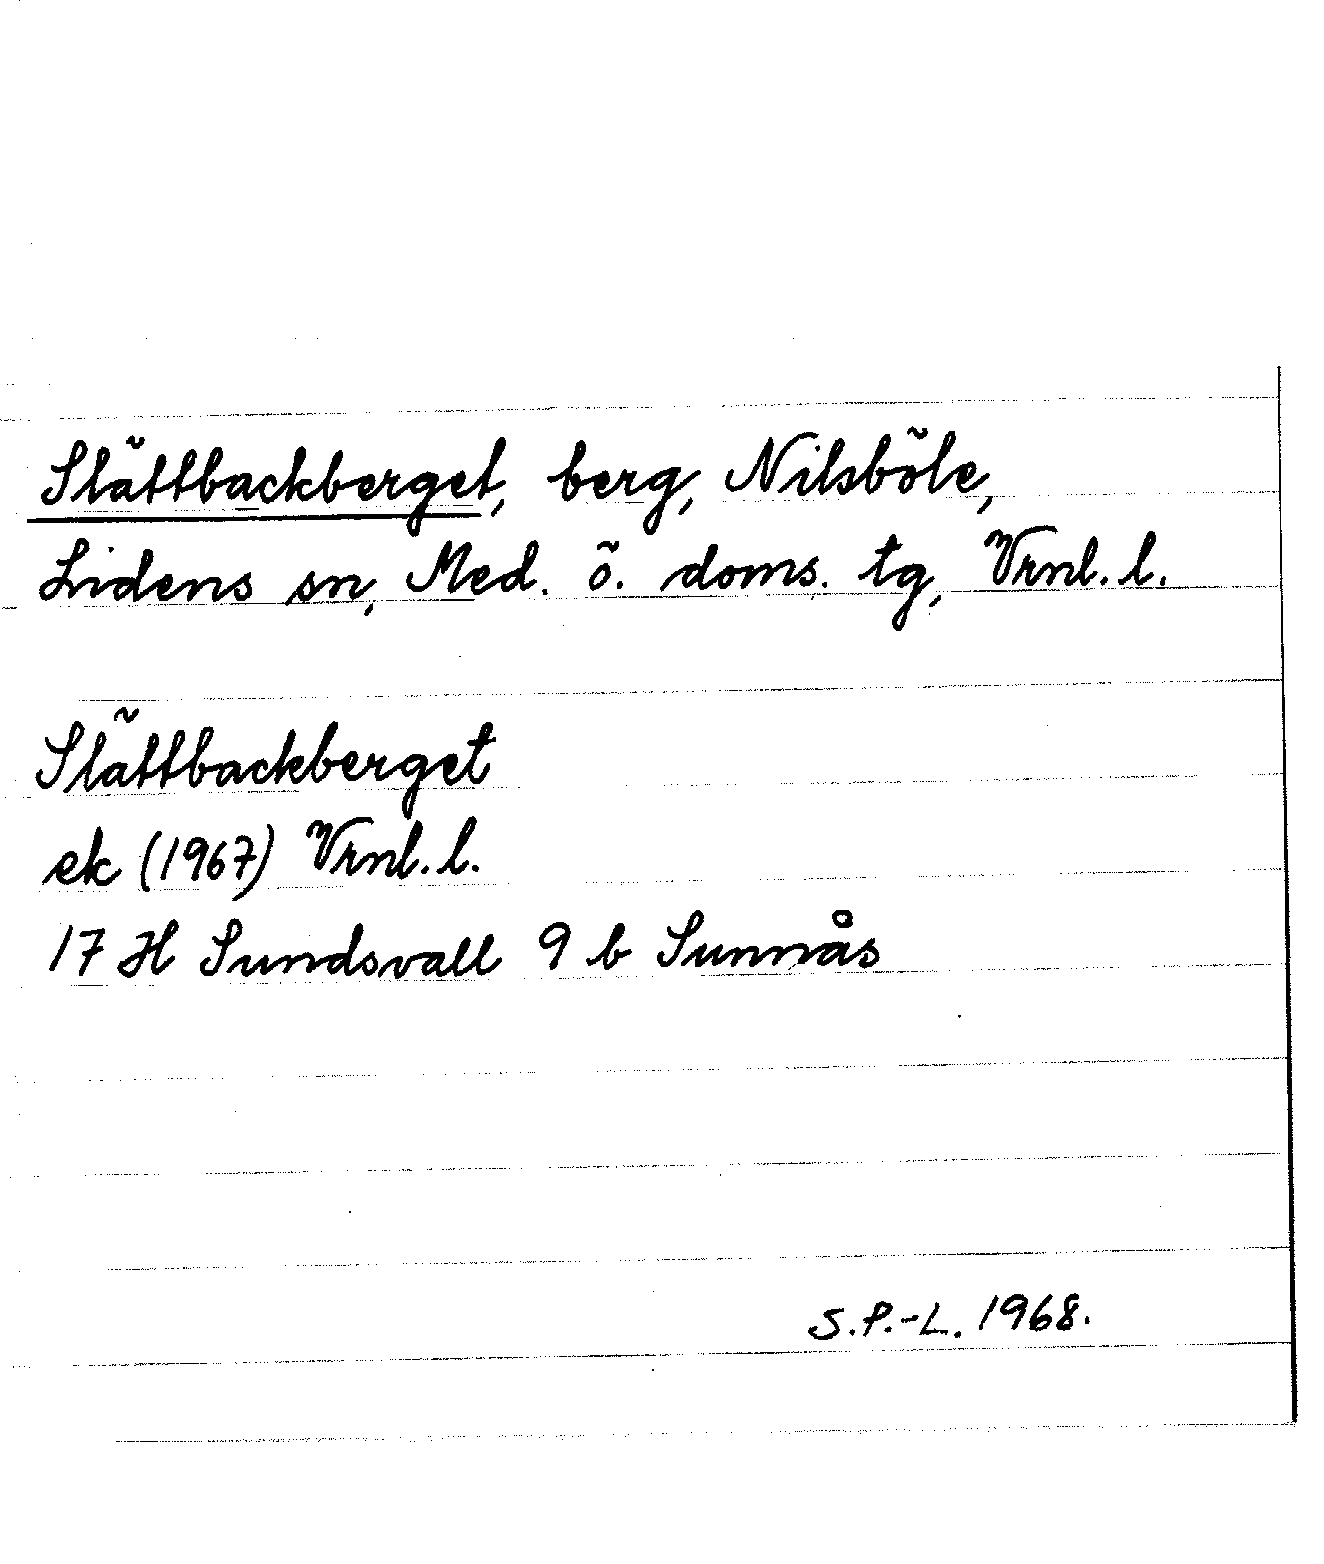 Slättbackberget, berg, Nilsböle,
Lidens sn, Med. ö. doms. tg, Vrnl. l.
Slättbackberget
ek (1967) Vrnl. l.
17 H Sundsvall 9 b Sunnås
S.P.-L. 1968.